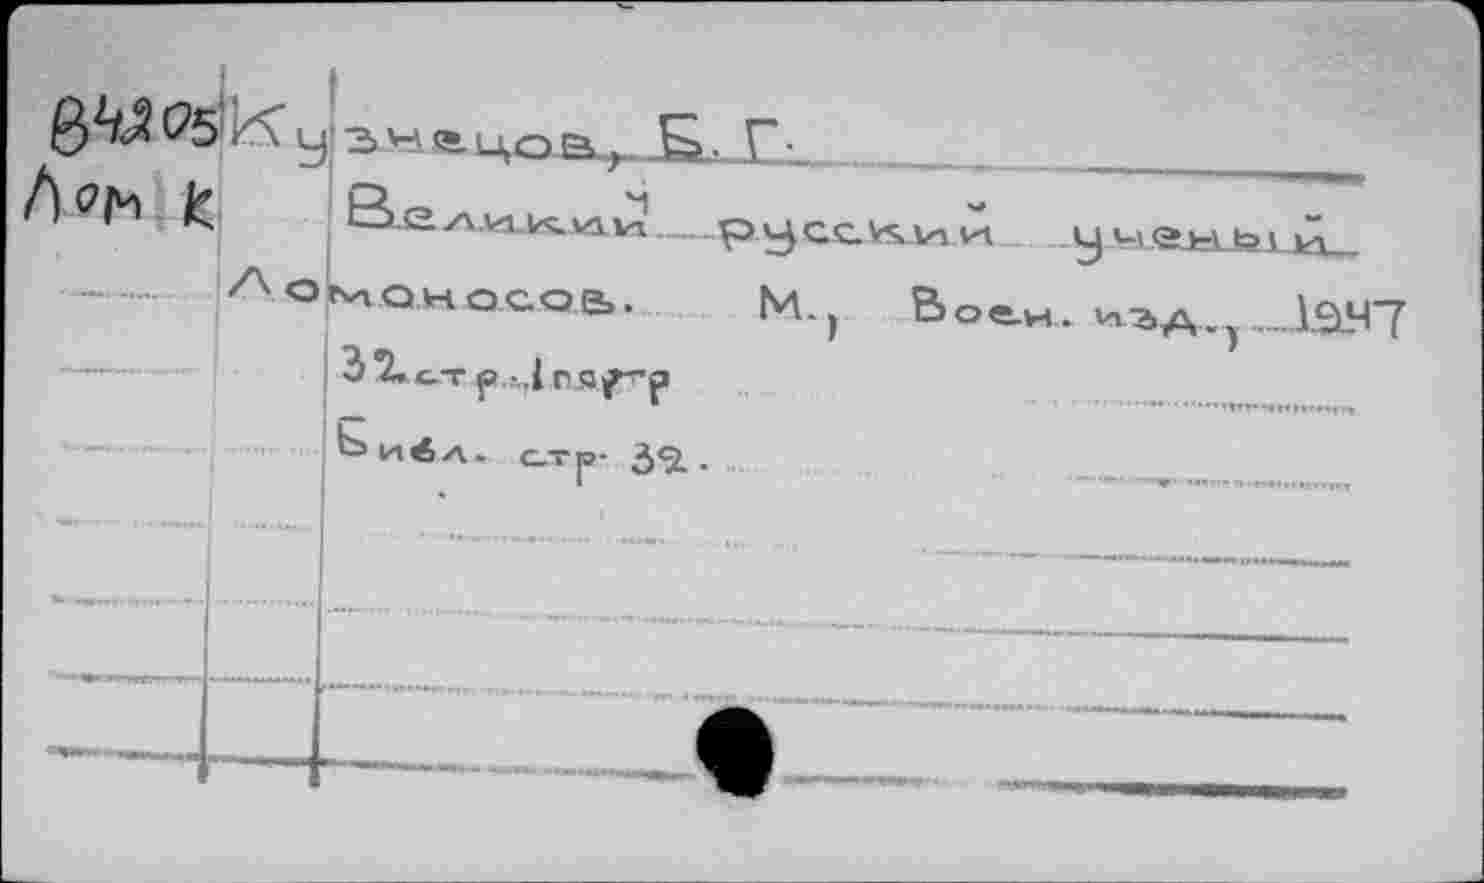 В4205 Кузнецов, Б. Г.
Лом К Великий русский ученый
Ломоносов. М., Воен. изд., 1947
32 стр. 1 портр
Библ. стр. 32.